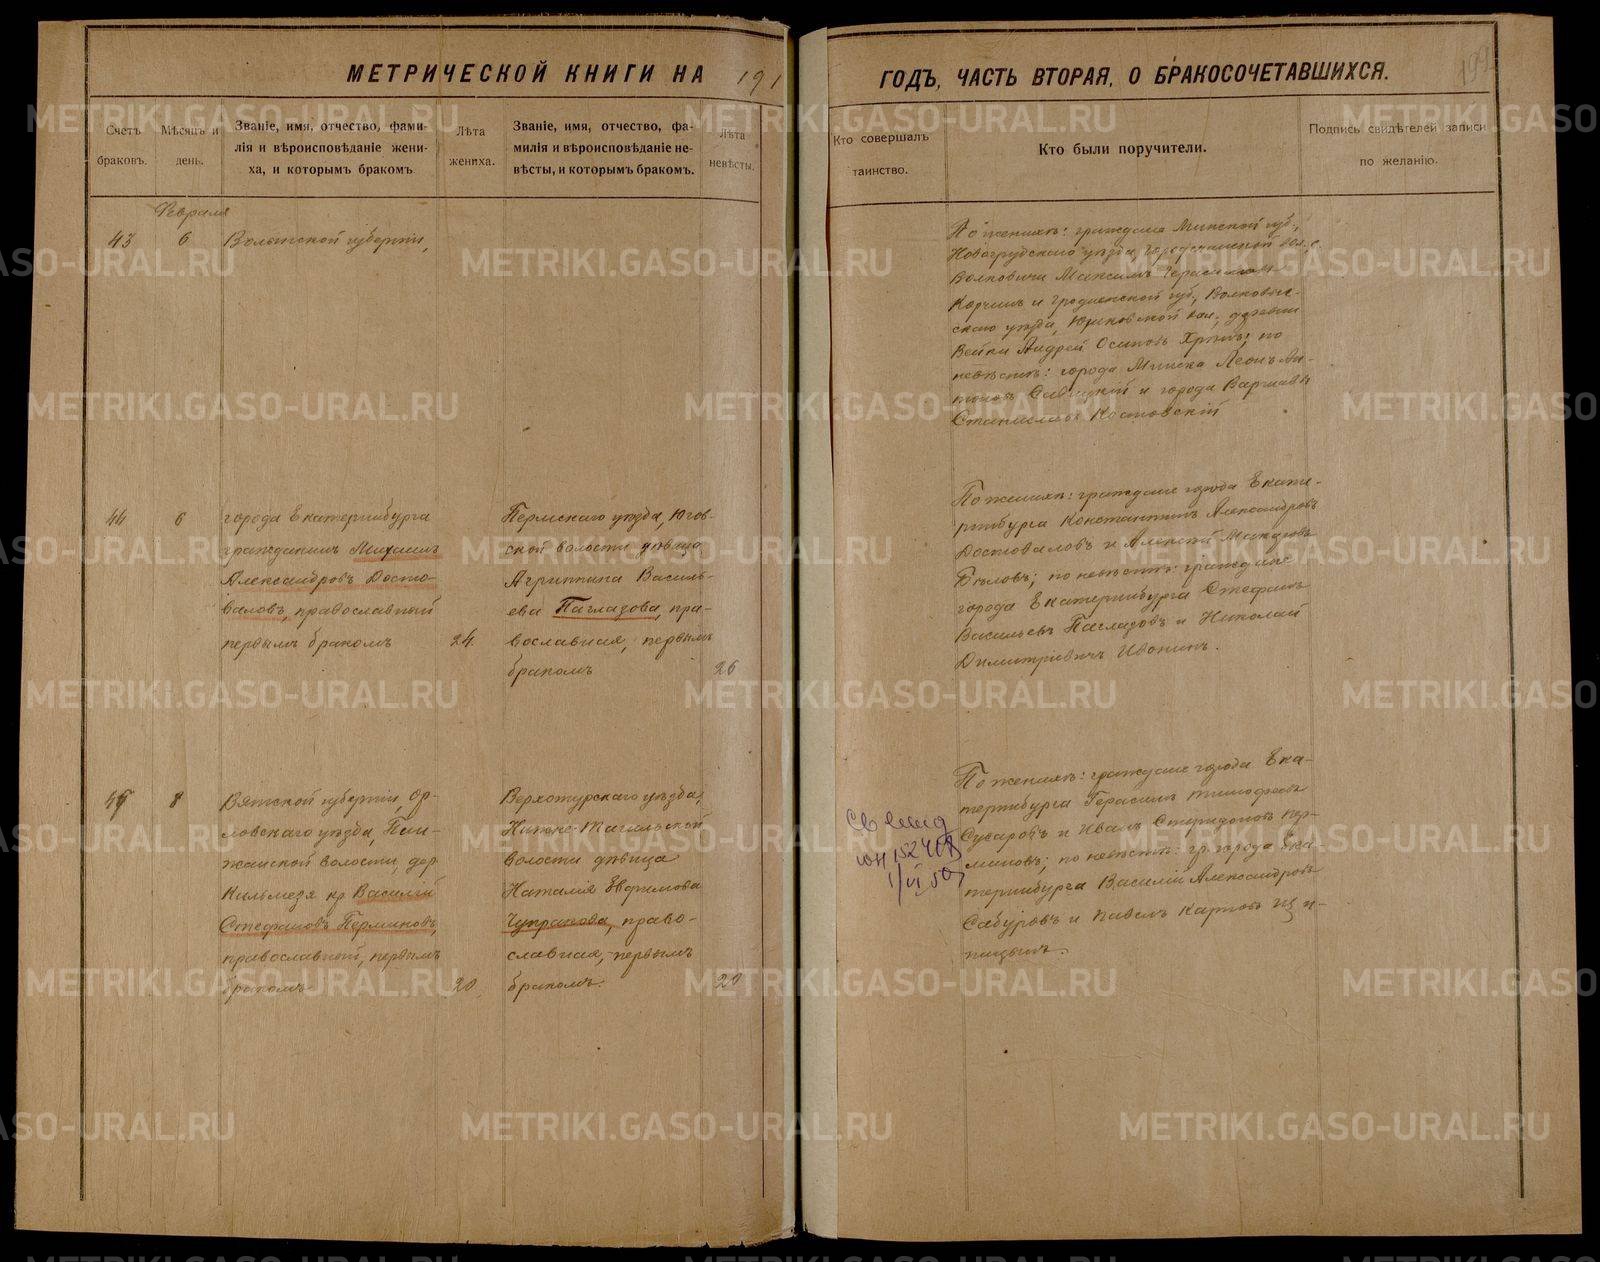 МЕТРИЧЕСКОЙ КНИГИ НА 191
ГОДЪ, ЧАСТЬ ВТОРАЯ, О БРАКОСОЧЕТАВШИХСЯ.
199
Счетъ
браковъ.
Мѣсяцъ и
день.
Званіе, имя, отчество, фами-
лія и вѣроисповѣданіе жени-
ха, и которымъ бракомъ
Лѣта
жениха.
Званіе, имя, отчество, фа-
милія и вѣроисповѣданіе не-
вѣсты, и которымъ бракомъ.
Лѣта
невѣсты.
Кто совершалъ
таинство.
Кто были поручители.
Подпись свидѣтелей записи
по желанію.
Февраля
43
6
Волынской губерніи,
По женихѣ: граждане Минской губ.,
Новогрудскаго уѣзда, вол. с.
Волковичи Максимъ Герасимовъ
и Гродненской губ., Волковы-
скаго уѣзда, вол., деревни
Вейки Андрей Осиповъ по
невѣстѣ: города Минска Леонъ Ан-
тоновъ и города Варшавы
Станиславъ
44
6
города Екатеринбурга
гражданинъ Михаилъ
Александровъ Досто-
валовъ, православный
первымъ бракомъ
24.
Пермскаго уѣзда, Югов-
ской волости дѣвица
Агриппина Василь-
ева Паглазова, пра-
вославная, первымъ
бракомъ
26
По женихѣ: граждане города Екате-
ринбурга Константинъ Александровъ
Достоваловъ и Алексѣй
Бѣловъ; по невѣстѣ: граждане
города Екатеринбурга Стефанъ
Васильевъ Паглазовъ и Николай
Димитріевичъ Ивонинъ.
45
8
Вятской губерніи, Ор-
ловскаго уѣзда,
волости, дер.
Кильмезя кр. Василій
Стефановъ Перминовъ,
православный, первымъ
бракомъ
20.
Верхотурскаго уѣзда,
Нижне-Тагильской
волости дѣвица
Наталія Ефимова
Чупракова, право-
славная, первымъ
бракомъ.
20
По женихѣ: граждане города Ека-
теринбурга Герасимъ Тимофеевъ
Сухаровъ и Иванъ Спиридоновъ Пер-
миновъ; по невѣстѣ: гр. города Ека-
теринбурга Василій Александровъ
Сабуровъ и Павелъ Карповъ
METRIKI.GASO-URAL.RU